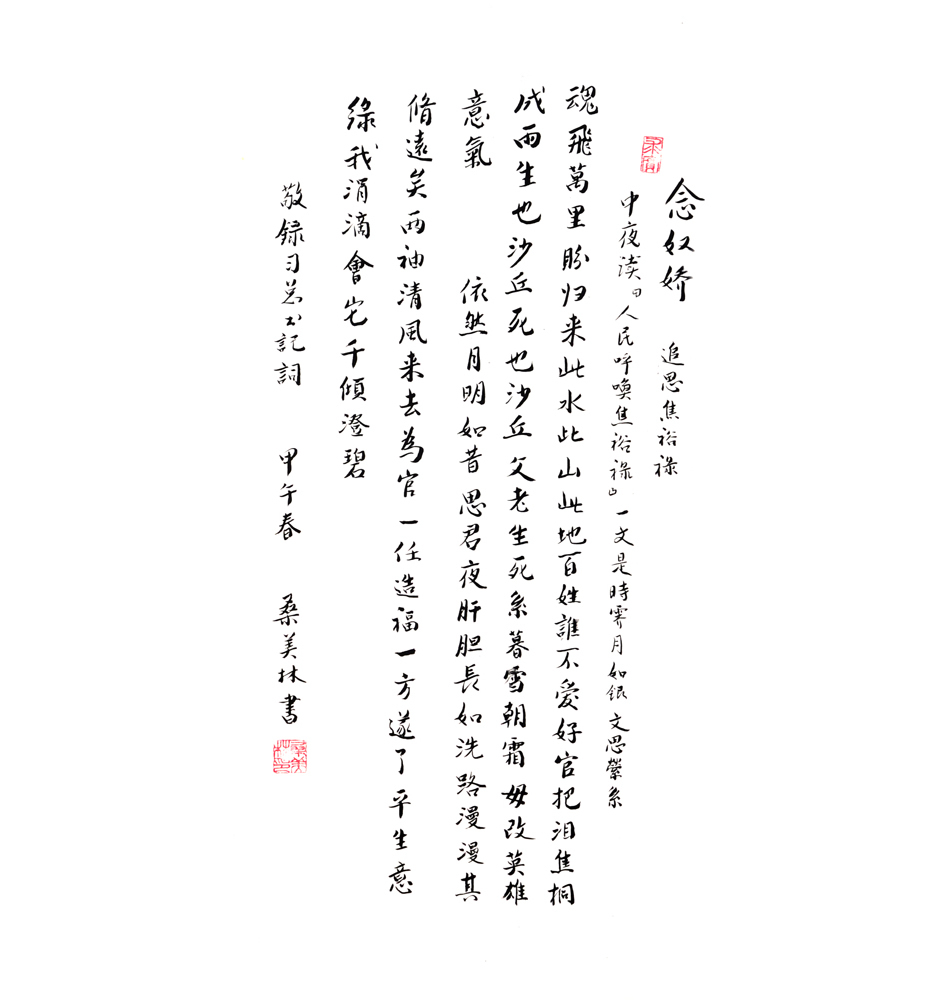 念奴娇 追思焦裕禄
中夜读『人民呼唤焦裕禄』一文是時霁月如银文思縈系
魂飛萬里盼归来此水此山此地百姓誰不爱好官把泪焦桐
成雨生也沙丘死也沙丘父老生死系暮雪朝霜毋改英雄
意氣 依然月明如昔思君夜夜肝胆長如洗路漫漫其
脩遠矣两袖清風来去為官一任造福一方遂了平生意
绿我涓滴會它千傾澄碧
敬録习总书記詞 甲午春 桑美林書